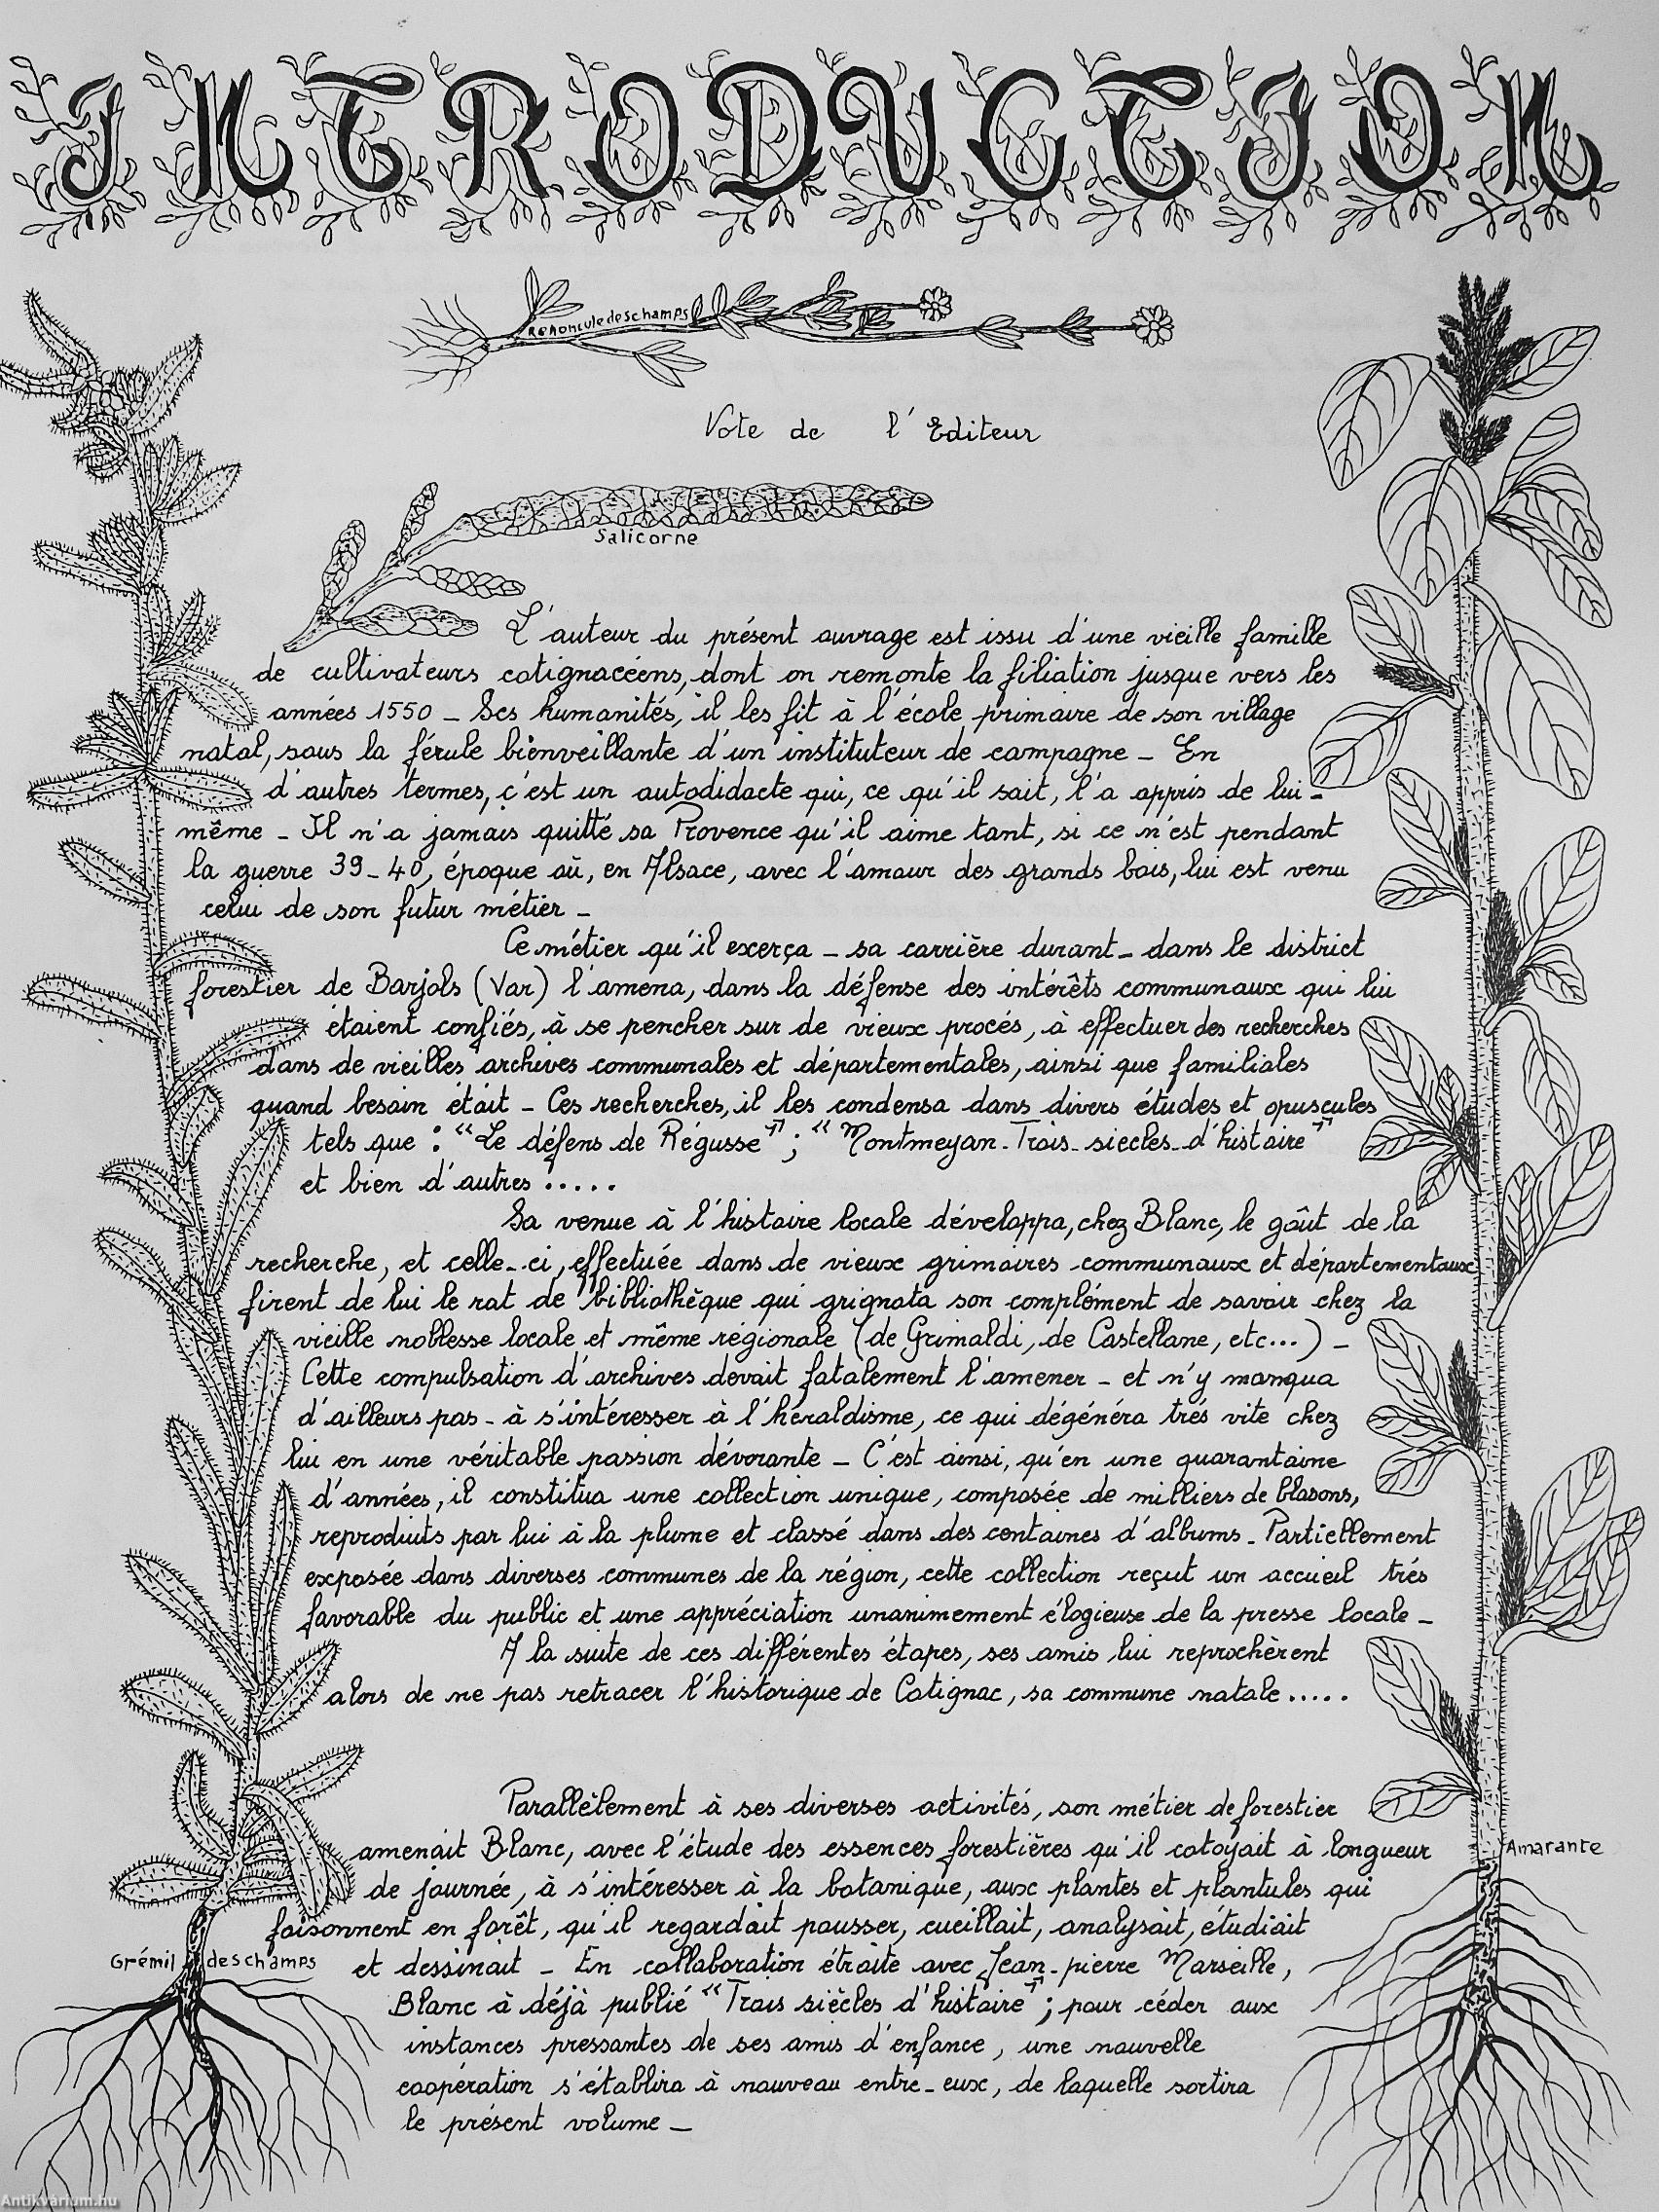 INTRODUCTION
Renoncule des champs
Note de l'Editeur
Salicorne
L'auteur du présent ouvrage est issu d'une vieille famille
de cultivateurs cotignacéens, dont on remonte la filiation jusque vers les
années 1550 _ Ses humanités, il les fit à l'école primaire de son village
natal, sous la férule bienveillante d'un instituteur de campagne _ En
d'autres termes, c'est un autodidacte qui, ce qu'il sait, l'a appris de lui_
même _ Il n'a jamais quitté sa Provence qu'il aime tant, si ce n'est pendant
la guerre 39_40, époque où, en Alsace, avec l'amour des grands bois, lui est venu
celui de son futur métier _
Ce métier qu'il exerça _ sa carrière durant _ dans le district
forestier de Barjols (Var) l'amena, dans la défense des intérêts communaux qui lui
étaient confiés, à se pencher sur de vieux procés, à effectuer des recherches
dans de vieilles archives communales et départementales, ainsi que familiales
quand besoin était _ Ces recherches, il les condensa dans divers études et opuscules
tels que : "Le défens de Régusse" ; "Montmeyan_Trois_siecles_d'histoire"
et bien d'autres .....
Sa venue à l'histoire locale développa, chez Blanc, le goût de la
recherche, et celle_ci, effectuée dans de vieux grimoires communaux et départementaux
firent de lui le rat de bibliothèque qui grignota son complément de savoir chez la
vieille noblesse locale et même régionale (de Grimaldi, de Castellane, etc...) _
Cette compulsation d'archives devait fatalement l'amener _ et n'y manqua
d'ailleurs pas _ à s'intéresser à l'héraldisme, ce qui dégénéra trés vite chez
lui en une véritable passion dévorante _ C'est ainsi, qu'en une quarantaine
d'années, il constitua une collection unique, composée de milliers de blasons,
reproduits par lui à la plume et classé dans des centaines d'albums _ Partiellement
exposée dans diverses communes de la région, cette collection reçut un accueil trés
favorable du public et une appréciation unanimement élogieuse de la presse locale _
A la suite de ces différentes étapes, ses amis lui reprochèrent
alors de ne pas retracer l'historique de Cotignac, sa commune natale .....
Parallèlement à ses diverses activités, son métier de forestier
amenait Blanc, avec l'étude des essences forestières qu'il cotoyait à longueur
Amarante
de journée, à s'intéresser à la botanique, aux plantes et plantules qui
foisonnent en forêt, qu'il regardait pousser, cueillait, analysait, étudiait
Grémil des champs
et dessinait _ En collaboration étroite avec Jean_pierre Marseille,
Blanc à déjà publié "Trois siècles d'histoire" ; pour céder aux
instances pressantes de ses amis d'enfance, une nouvelle
coopération s'établira à nouveau entre_eux, de laquelle sortira
le présent volume _
Antikvárium.hu